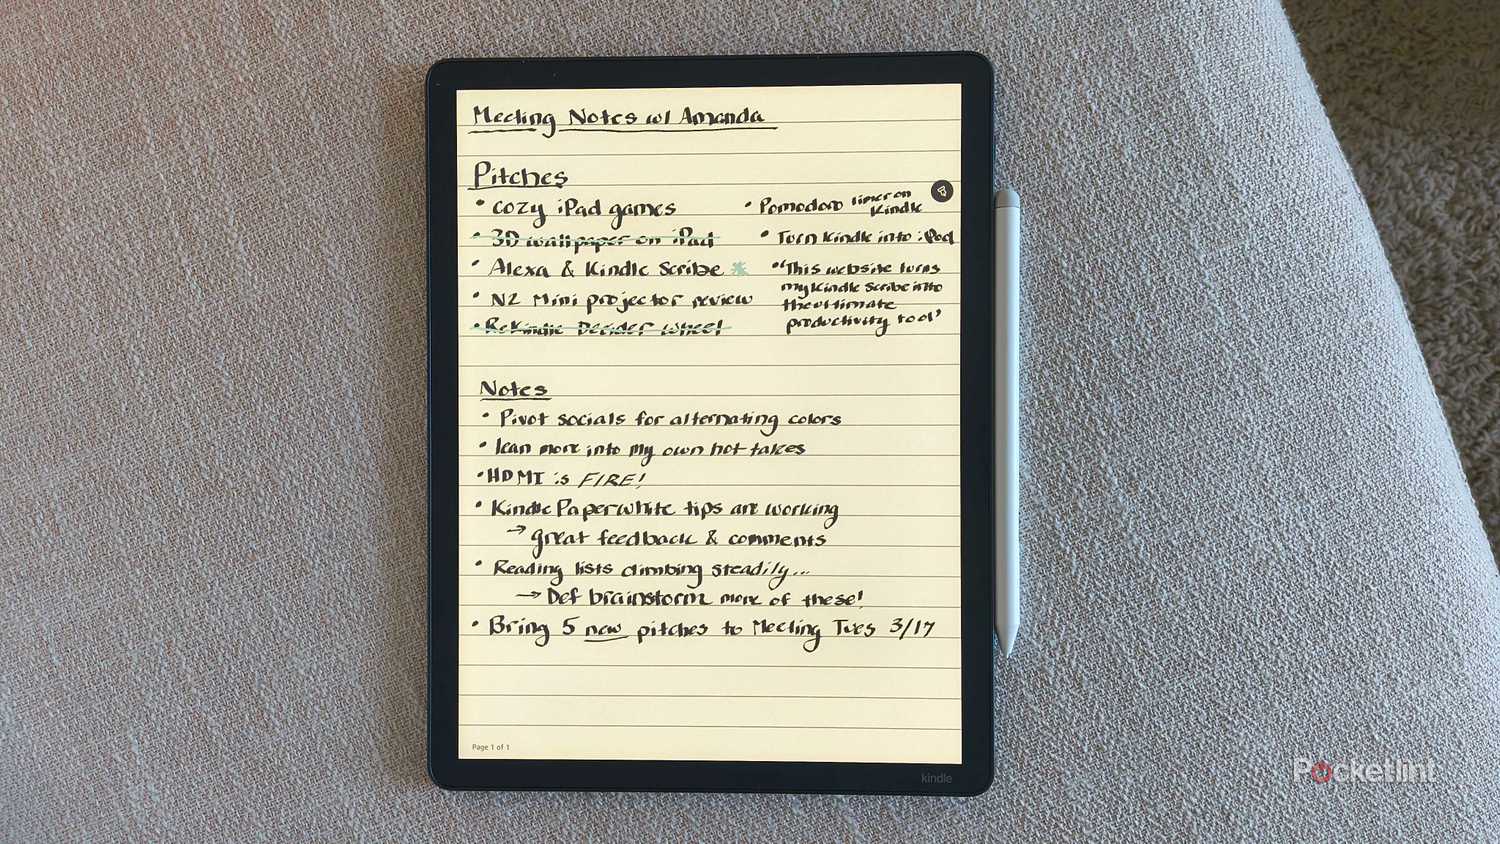 Meeting Notes w/ Amanda
Pitches
• cozy iPad games
• 3D wallpaper on iPad
• Alexa & Kindle Scribe *
• N2 Mini projector review
• ReKindle Decider wheel
• Pomodoro timer on
Kindle
• Turn Kindle into iPod
• "This website turns
my Kindle Scribe into
the ultimate
productivity tool"
Notes
• Pivot socials for alternating colors
• lean more into my own hot takes
• HDMI is FIRE!
• Kindle Paperwhite tips are working
→ great feedback & comments
• Reading lists climbing steadily...
→ Def brainstorm more of these!
• Bring 5 new pitches to Meeting Tues 3/17
Page 1 of 1
kindle
Pocketlint